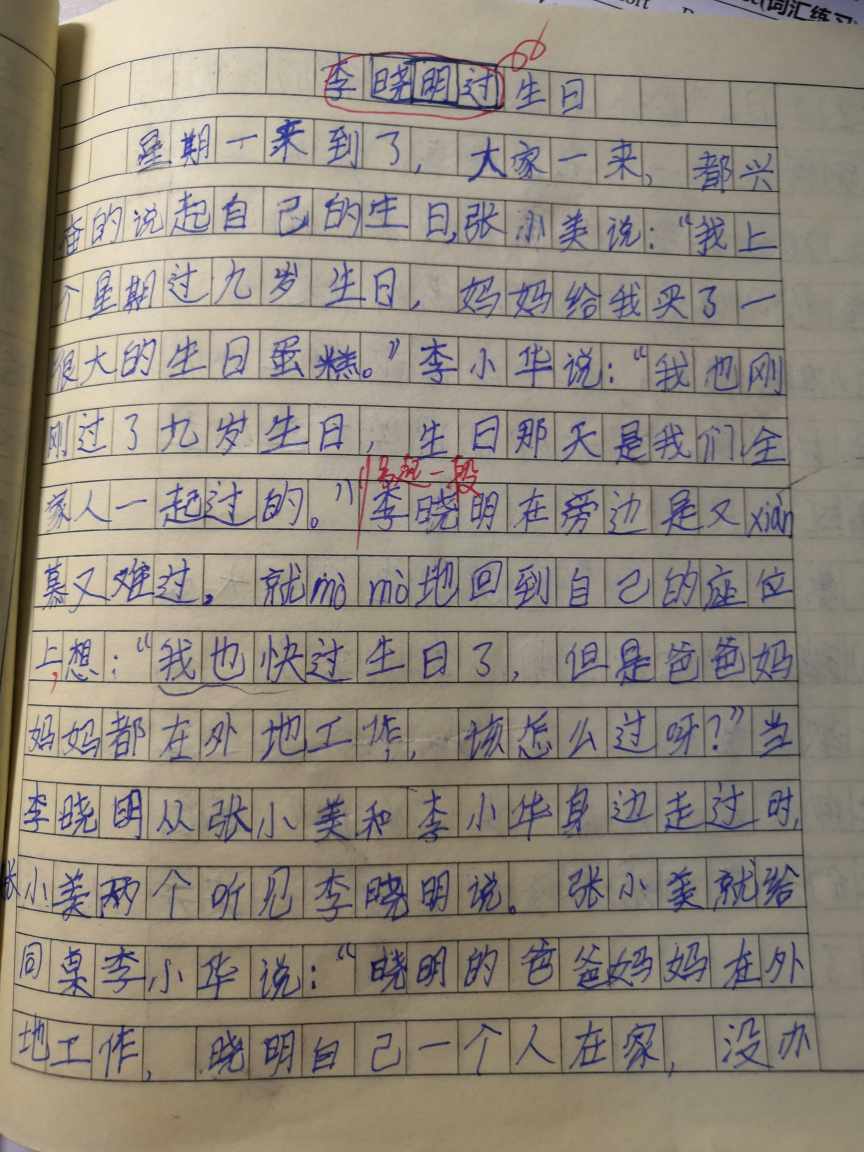 (词汇练习
李晓明过生日
星期一来到了，大家一来，都兴
奋的说起自己的生日,张小美说：“我上
个星期过九岁生日，妈妈给我买了一
很大的生日蛋糕。”李小华说：“我也刚
刚过了九岁生日，生日那天是我们全
家人一起过的。”李晓明在旁边是又xiàn
另起一段
慕又难过。就mò mò地回到自己的座位
上,想：“我也快过生日了，但是爸爸妈
妈妈都在外地工作，该怎么过呀？”当
李晓明从张小美和李小华身边走过时,
张小美两个听见李晓明说。张小美就给
同桌李小华说：“晓明的爸爸妈妈在外
地工作，晓明自己一个人在家，没办